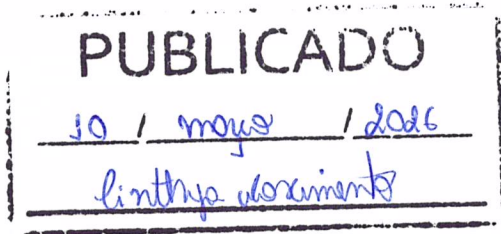 PUBLICADO
10 / março / 2026
Cinthya Nascimento